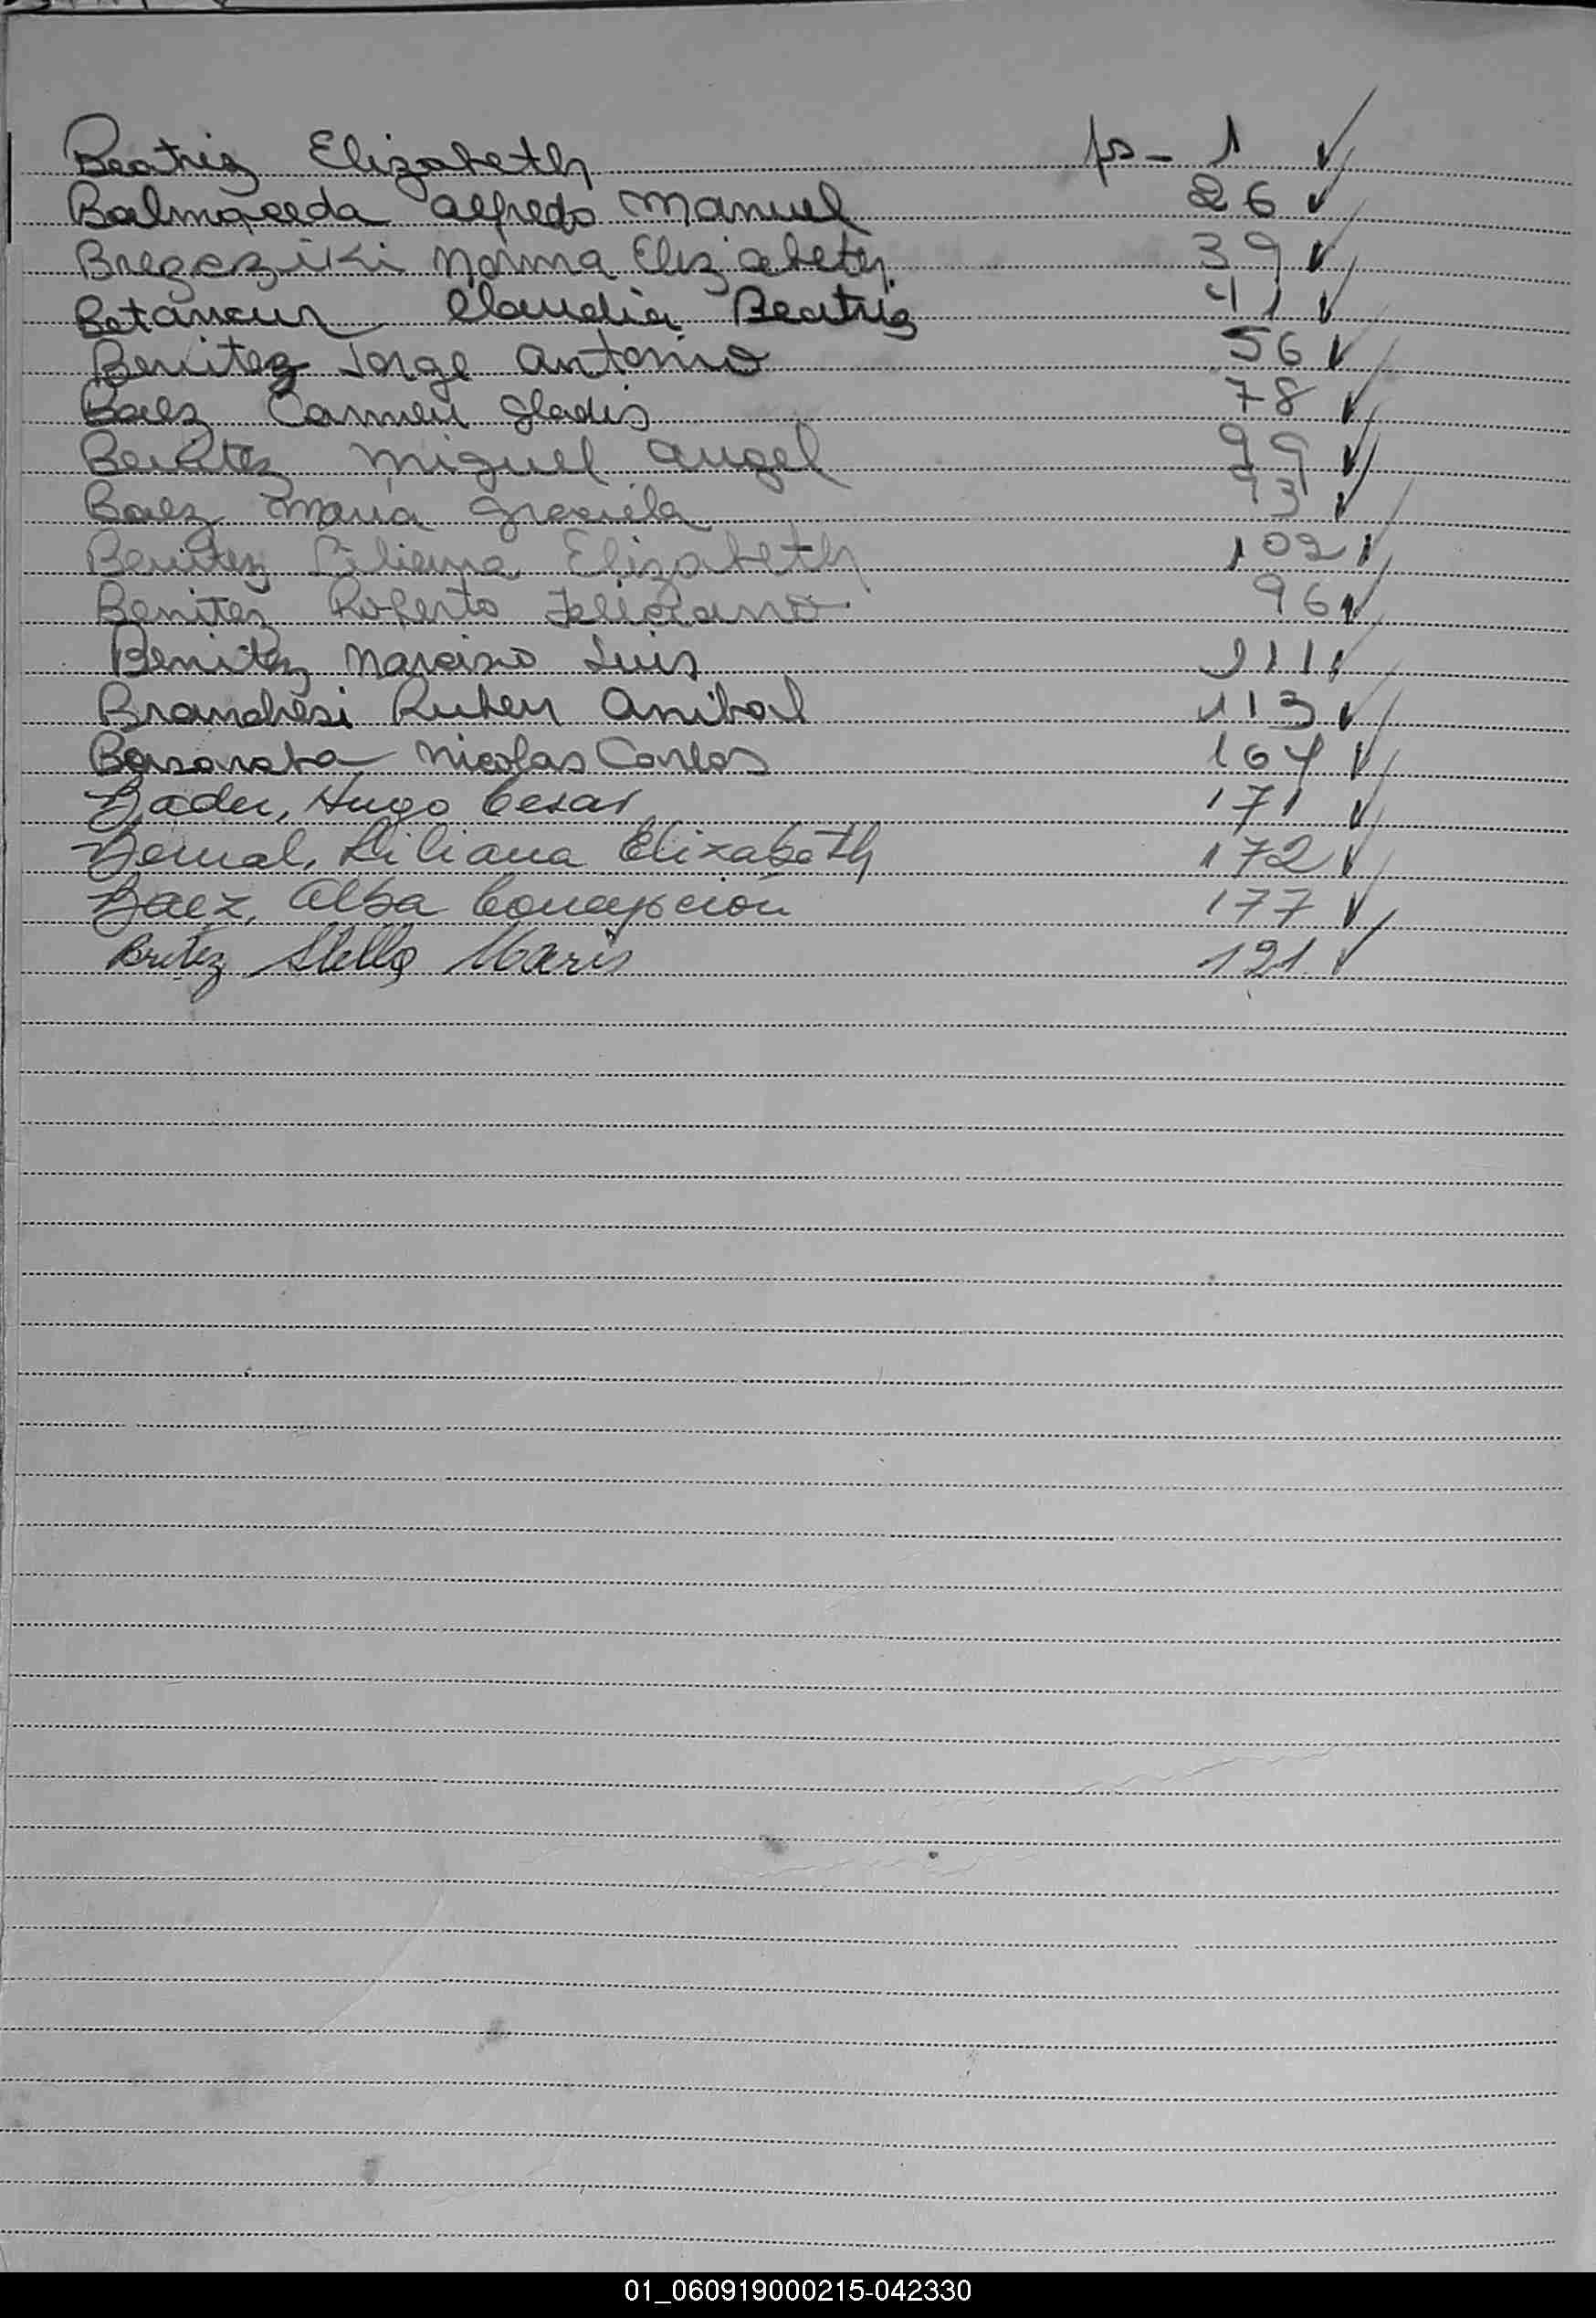 Beatriz Elizabeth fs - 1 ✓
Balmaceda Alfredo Manuel 26 ✓
Bregeziki Norma Elizabeth 39 ✓
Betancur Claudia Beatriz 41 ✓
Benitez Jorge Antonio 56 ✓
Baez Carmen Gladis 78 ✓
Benitez Miguel Angel 99 ✓
Baez María Graciela 93 ✓
Benitez Liliana Elizabeth 102 ✓
Benitez Roberto Feliciano 96 ✓
Benitez Narciso Luis 111 ✓
Brandresi Ruben Anibal 113 ✓
Nicolas Carlos 164 ✓
Bader, Hugo Cesar 171 ✓
Bernal, Liliana Elizabeth 172 ✓
Baez, Alba Concepción 177 ✓
Britez Stella Maris 191 ✓
01_060919000215-042330